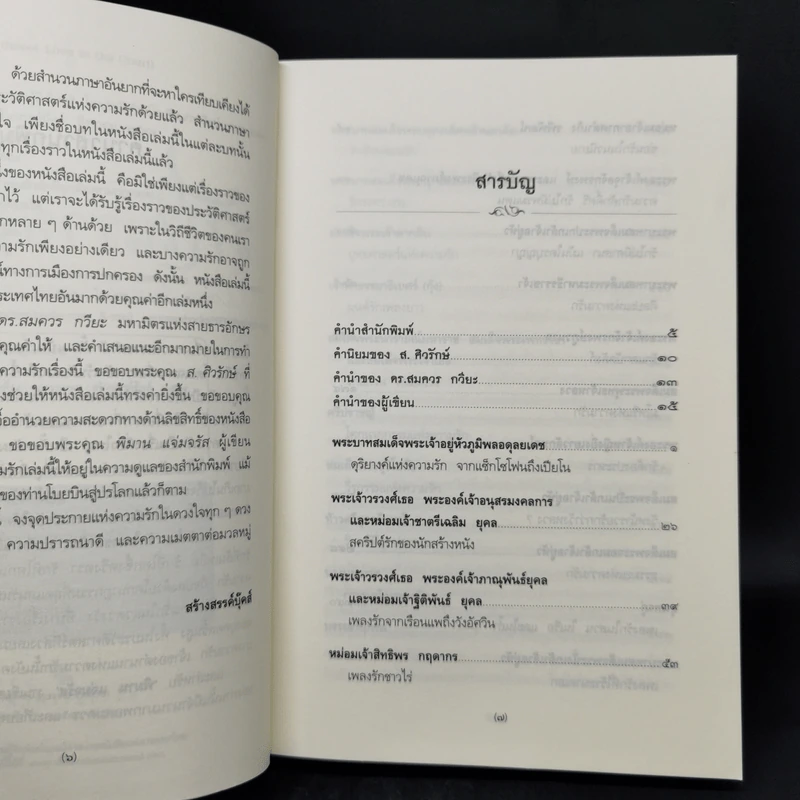 ด้วยสำนวนภาษาอันยากที่จะหาใครเทียบเคียงได้
ระวัติศาสตร์แห่งความรักด้วยแล้ว สำนวนภาษา
ใจ เพียงชื่อบทในหนังสือเล่มนี้ในแต่ละบทนั้น
ทุกเรื่องราวในหนังสือเล่มนี้แล้ว
่งของหนังสือเล่มนี้ คือมิใช่เพียงแต่เรื่องราวของ
าไว้ แต่เราจะได้รับรู้เรื่องราวของประวัติศาสตร์
กหลาย ๆ ด้านด้วย เพราะในวิถีชีวิตของคนเรา
วามรักเพียงอย่างเดียว และบางความรักอาจถูก
น์ทางการเมืองการปกครอง ดังนั้น หนังสือเล่มนี้
ระเทศไทยอันมากด้วยคุณค่าอีกเล่มหนึ่ง
ดร.สมควร กวียะ มหามิตรแห่งสายธารอักษร
คุณค่าให้ และคำเสนอแนะอีกมากมายในการทำ
ความรักเรื่องนี้ ขอขอบพระคุณ ส. ศิวรักษ์ ที่
งช่วยให้หนังสือเล่มนี้ทรงค่ายิ่งขึ้น ขอขอบคุณ
อื้ออำนวยความสะดวกทางด้านลิขสิทธิ์ของหนังสือ
ขอขอบพระคุณ พิมาน แจ่มจรัส ผู้เขียน
ามรักเล่มนี้ให้อยู่ในความดูแลของสำนักพิมพ์ แม้
ของท่านโบยบินสู่ปรโลกแล้วก็ตาม
้ จงจุดประกายแห่งความรักในดวงใจทุก ๆ ดวง
ความปรารถนาดี และความเมตตาต่อมวลหมู่
สร้างสรรค์บุ๊คส์
(๖)
สารบัญ
คำนำสำนักพิมพ์ ๕
คำนิยมของ ส. ศิวรักษ์ ๑๐
คำนำของ ดร.สมควร กวียะ ๑๓
คำนำของผู้เขียน ๑๕
พระบาทสมเด็จพระเจ้าอยู่หัวภูมิพลอดุลยเดช ๑
ดุริยางค์แห่งความรัก จากแซ็กโซโฟนถึงเปียโน
พระเจ้าวรวงศ์เธอ พระองค์เจ้าอนุสรมงคลการ
และหม่อมเจ้าชาตรีเฉลิม ยุคล ๒๖
สคริปต์รักของนักสร้างหนัง
พระเจ้าวรวงศ์เธอ พระองค์เจ้าภาณุพันธ์ยุคล
และหม่อมเจ้าฐิติพันธ์ ยุคล ๓๙
เพลงรักจากเรือนแพถึงวังอัศวิน
หม่อมเจ้าสิทธิพร กฤดากร ๕๓
เพลงรักชาวไร่
(๗)